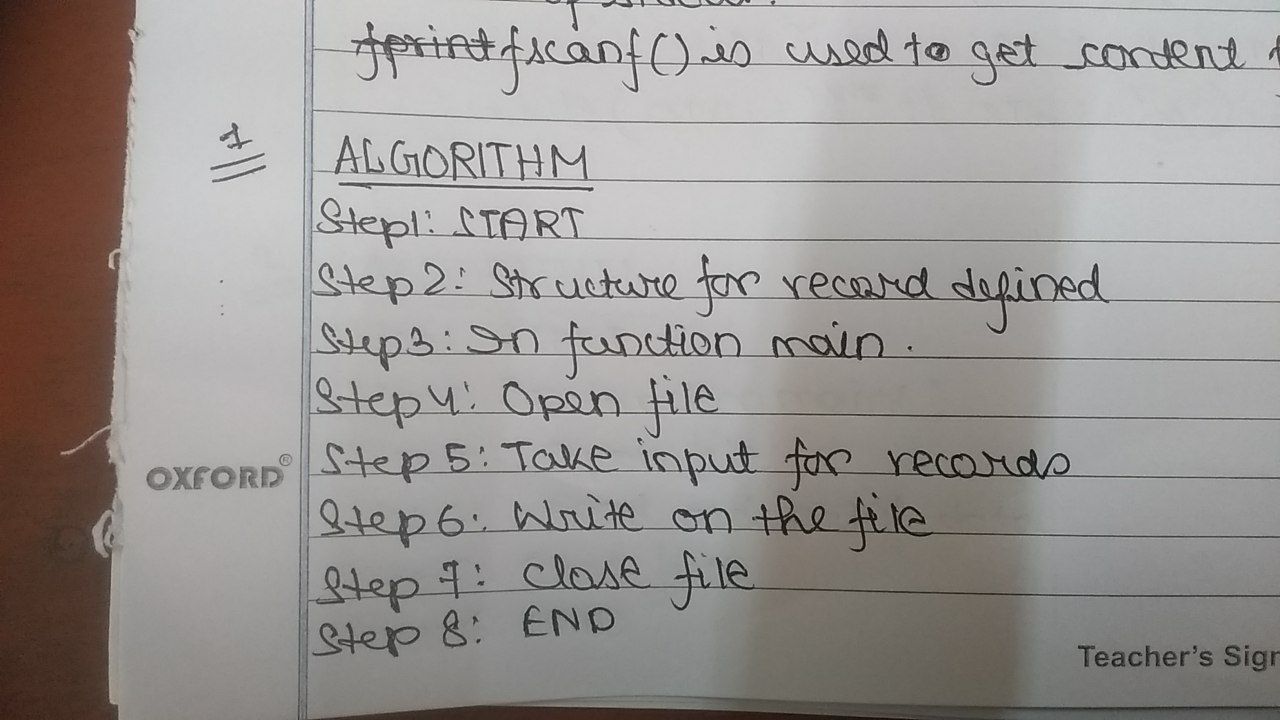 fprint fscanf() is used to get content
1
ALGORITHM
Step1: START
Step 2: Structure for record defined
Step3: In function main.
Step 4: Open file
Step 5: Take input for records
Step 6: Write on the file
Step 7: close file
Step 8: END
OXFORD®
Teacher's Sign